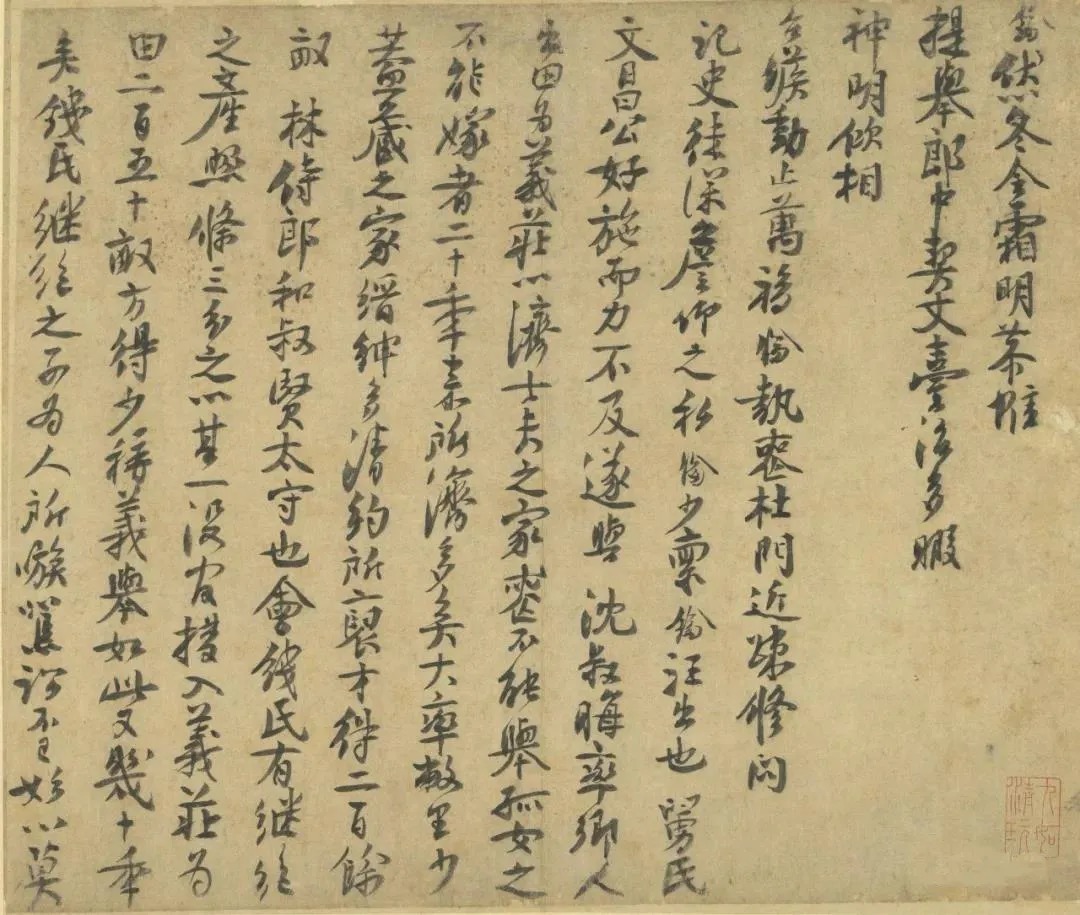 鑰伏以冬令霜明恭惟
提舉郎中契丈臺治多暇
神明依相
台候動止萬福鑰執喪杜門近疎修問
記史徒深詹仰之私鑰少稟鑰汪出也舅氏
文昌公好施而力不及遂與沈叔晦率鄉人
出田为義莊以濟士夫之家喪不能舉孤女之
不能嫁者二十年来所濟多矣大率敝里少
蓋藏之家縉紳多清約所裒才得二百餘
畝林侍郎和叔賢太守也會錢氏有继绝
之產照條三分之以其一没官撥入義莊为
田二百五十畝方得少稱義舉如此又幾十年
矣錢氏继绝之子为人所嗾駕詞不已始以莫
九如清玩